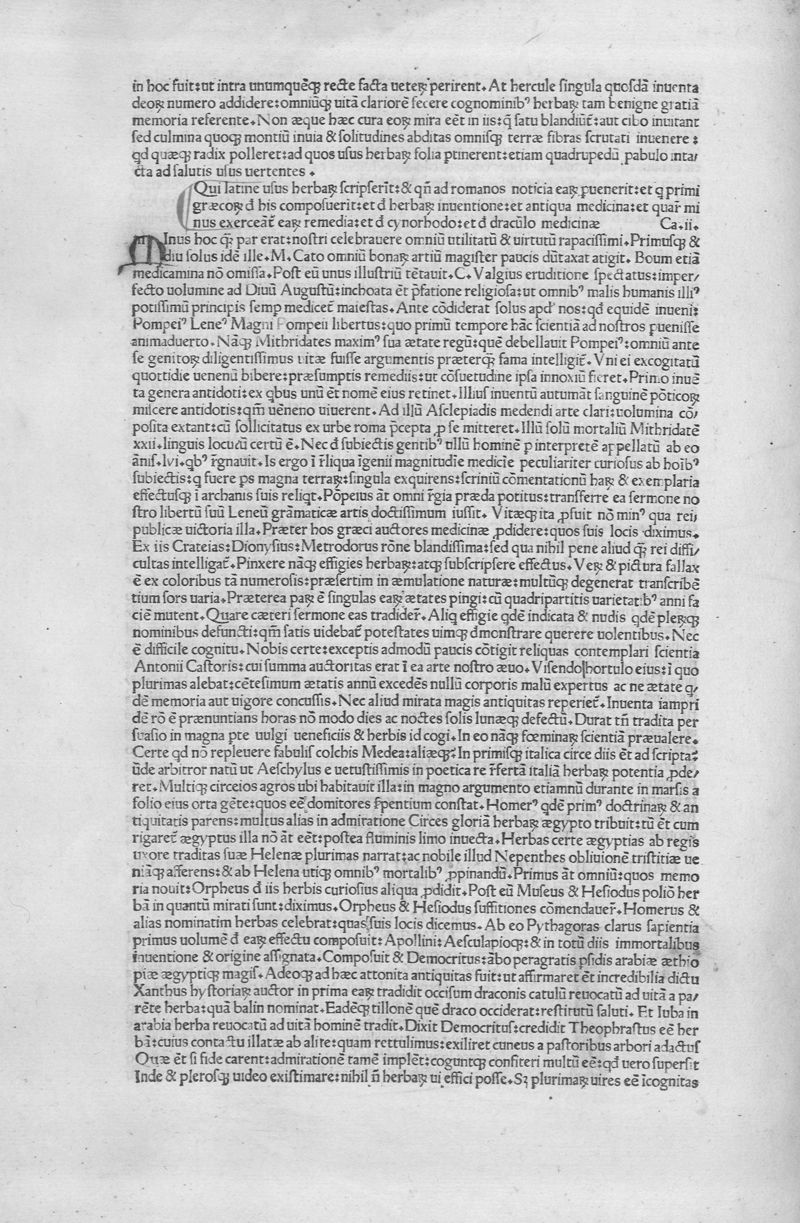 in hoc fuit:ut intra unumquēqȝ recte facta ueteꝝ perirent. At hercule ſingula quoſdā inuenta
deoꝝ numero addidere:omniūqȝ uitā clariorē fecere cognominibꝰ herbaꝝ tam benigne gratiā
memoria referente. Non æque hæc cura eoꝝ mira eēt in iis:q̄ ſatu blandiūt᷑:aut cibo inuitant
ſed culmina quoqȝ montiū inuia & ſolitudines abditas omniſqȝ terræ fibras ſcrutati inuenere:
qd quæqȝ radix polleret:ad quos uſus herbaꝝ folia ꝑtinerent:etiam quadrupedū pabulo inta/
cta ad ſalutis uſus uertentes.
Qui latine uſus herbaꝝ ſcripſerīt:& qn̄ ad romanos noticia eaꝝ ꝑuenerit:et q primi
græcoꝝ đ his compoſuerit:et đ herbaꝝ inuentione:et antiqua medicina:et quar mi
nus exerceāt᷑ eaꝝ remedia:et đ cynorhodo:et đ dracūlo medicinæ Ca.ii.
MInus hoc q̄ꝫ par erat:noſtri celebrauere omniū utilitatū & uirtutū rapaciſſimi. Primuſqȝ &
diu ſolus idē ille. M. Cato omniū bonaꝝ artiū magiſter paucis dūtaxat atigit. Boum etiā
medicamina nō omiſſa. Poſt eū unus illuſtriū tētauit. C. Valgius eruditione ſpectatus:imper/
fecto uolumine ad Diuū Auguſtū:inchoata ēt p̄fatione religioſa:ut omnibꝰ malis humanis illiꝰ
potiſſimū principis ſemp medicet᷑ maieſtas. Ante cōdiderat ſolus apđ nos:qđ equidē inueni:
Pompeiꝰ Leneꝰ Magni Pompeii libertus:quo primū tempore hāc ſcientiā ad noſtros ꝑueniſſe
animaduerto. Nāqȝ Mithridates maximꝰ ſua ætate regū:quē debellauit Pompeiꝰ:omniū ante
ſe genitoꝝ diligentiſſimus uitæ fuiſſe argumentis præterqȝ fama intelligit᷑. Vni ei excogitatū
quottidie uenenū bibere:præſumptis remediis:ut cōſuetudine ipſa innoxiū fieret. Primo inuē
ta genera antidoti:ex qbus unū ēt nomē eius retinet. Illiuſ inuentū autumāt ſanguinē pōticoꝝ
miſcere antidotis:qm̄ uēneno uiuerent. Ad illū Aſclepiadis medendi arte clari:uolumina cō/
poſita extant:cū ſollicitatus ex urbe roma p̄cepta ꝓ ſe mitteret. Illū ſolū mortaliū Mithridatē
xxii. linguis locucū certū ē. Nec đ ſubiectis gentibꝰ ullū hominē p interpretē appellatū ab eo
āniſ. lvi. qbꝰ r᷑gnauit. Is ergo ī r᷑liqua īgenii magnitudīe medicīe peculiariter curioſus ab hoībꝰ
ſubiectis:q fuere ps magna terraꝝ:ſingula exquirens:ſcriniū cōmentationū haꝝ & exemplaria
effectuſqȝ ī archanis ſuis reliqt. Pōpeius āt omni r᷑gia præda potitus:tranſferre ea ſermone no
ſtro libertū ſuū Leneū grāmaticæ artis doctiſſimum iuſſit. Vitæqȝ ita ꝓfuit nō minꝰ qua rei/
publicæ uictoria illa. Præter hos græci auctores medicinæ ꝓdidere:quos ſuis locis diximus.
Ex iis Crateias:Dionyſius:Metrodorus rōne blandiſſima:ſed qua nihil pene aliud qȝ rei diffi/
cultas intelligat᷑. Pinxere nāqȝ effigies herbaꝝ:atqȝ ſubſcripſere effectus. Veꝝ & pictura fallax
ē ex coloribus tā numeroſis:præſertim in æmulatione naturæ:multūqȝ degenerat tranſcribē
tium ſors uaria. Præterea paꝝ ē ſingulas eaꝝ ætates pingi:cū quadripartitis uarietatibꝰ anni fa
ciē mutent. Quare cæteri ſermone eas tradider᷑. Aliq effigie qđē indicata & nudis qđē pleꝝqȝ
nominibus defuncti:qm̄ ſatis uidebat᷑ poteſtates uimqȝ đmonſtrare querere uolentibus. Nec
ē difficile cognitu. Nobis certe:exceptis admodū paucis cōtigit reliquas contemplari ſcientia
Antonii Caſtoris:cui ſumma auctoritas erat ī ea arte noſtro æuo. Viſendo hortulo eius:ī quo
plurimas alebat:cēteſimum ætatis annū excedēs nullū corporis malū expertus ac ne ætate q/
dē memoria aut uigore concuſſis. Nec aliud mirata magis antiquitas reperiet᷑. Inuenta iampri
dē rō ē prænuntians horas nō modo dies ac noctes ſolis lunæqȝ defectū. Durat tn̄ tradita per
ſuaſio in magna pte uulgi ueneficiis & herbis id cogi. In eo nāqȝ fœminaꝝ ſcientiā præualere.
Certe qđ nō repleuere fabuliſ colchis Medea:aliæqȝ:In primiſqȝ italica circe diis ēt ad ſcripta:
ūde arbitror natū ut Aeſchylus e uetuſtiſſimis in poetica re r᷑fertā italiā herbaꝝ potentia ꝓde/
ret. Multiqȝ circeios agros ubi habitauit illa:in magno argumento etiamnū durante in marſis a
folio eius orta gēte:quos eē domitores ſ᷑pentium conſtat. Homerꝰ qđē primꝰ doctrinaꝝ & an
tiquitatis parens:multus alias in admiratione Circes gloriā herbaꝝ ægypto tribuit:tū ēt cum
rigaret᷑ ægyptus illa nō āt eēt:poſtea fluminis limo inuecta. Herbas certe ægyptias ab regis
uxore traditas ſuæ Helenæ plurimas narrat:ac nobile illud Nepenthes obliuionē triſtitiæ ue
niāqȝ afferens:& ab Helena utiqȝ omnibꝰ mortalibꝰ ꝓpinandū. Primus āt omniū:quos memo
ria nouit:Orpheus đ iis herbis curioſius aliqua ꝓdidit. Poſt eū Muſeus & Heſiodus poliō her
bā in quantū mirati ſunt:diximus. Orpheus & Heſiodus ſuffitiones cōmendauer᷑. Homerus &
alias nominatim herbas celebrat:quas ſuis locis dicemus. Ab eo Pythagoras clarus ſapientia
primus uolumē đ eaꝝ effectu compoſuit:Apollini:Aeſculapioqȝ:& in totū diis immortalibus
inuentione & origine aſſignata. Compoſuit & Democritus:ābo peragratis pſidis arabiæ æthio
piæ ægyptiqȝ magiſ. Adeoqȝ ad hæc attonita antiquitas fuit:ut affirmaret ēt incredibilia dictu
Xanthus hyſtoriaꝝ auctor in prima eaꝝ tradidit occiſum draconis catulū reuocatū ad uitā a pa/
rēte herba:quā balin nominat. Eadēqȝ tillonē quē draco occiderat:reſtitutū ſaluti. Et Iuba in
arabia herba reuocatū ad uitā hominē tradit. Dixit Democrituſ:credidit Theophraſtus eē her
bā:cuius contactu illatæ ab alite:quam rettulimus:exiliret cuneus a paſtoribus arbori adactuſ
Quæ ēt ſi fide carent:admirationē tamē implēt:coguntqȝ confiteri multū eē:qđ uero ſuperſit
Inde & pleroſqȝ uideo exiſtimare:nihil n̄ herbaꝝ ui effici poſſe. Sȝ plurimaꝝ uires eē īcognitas